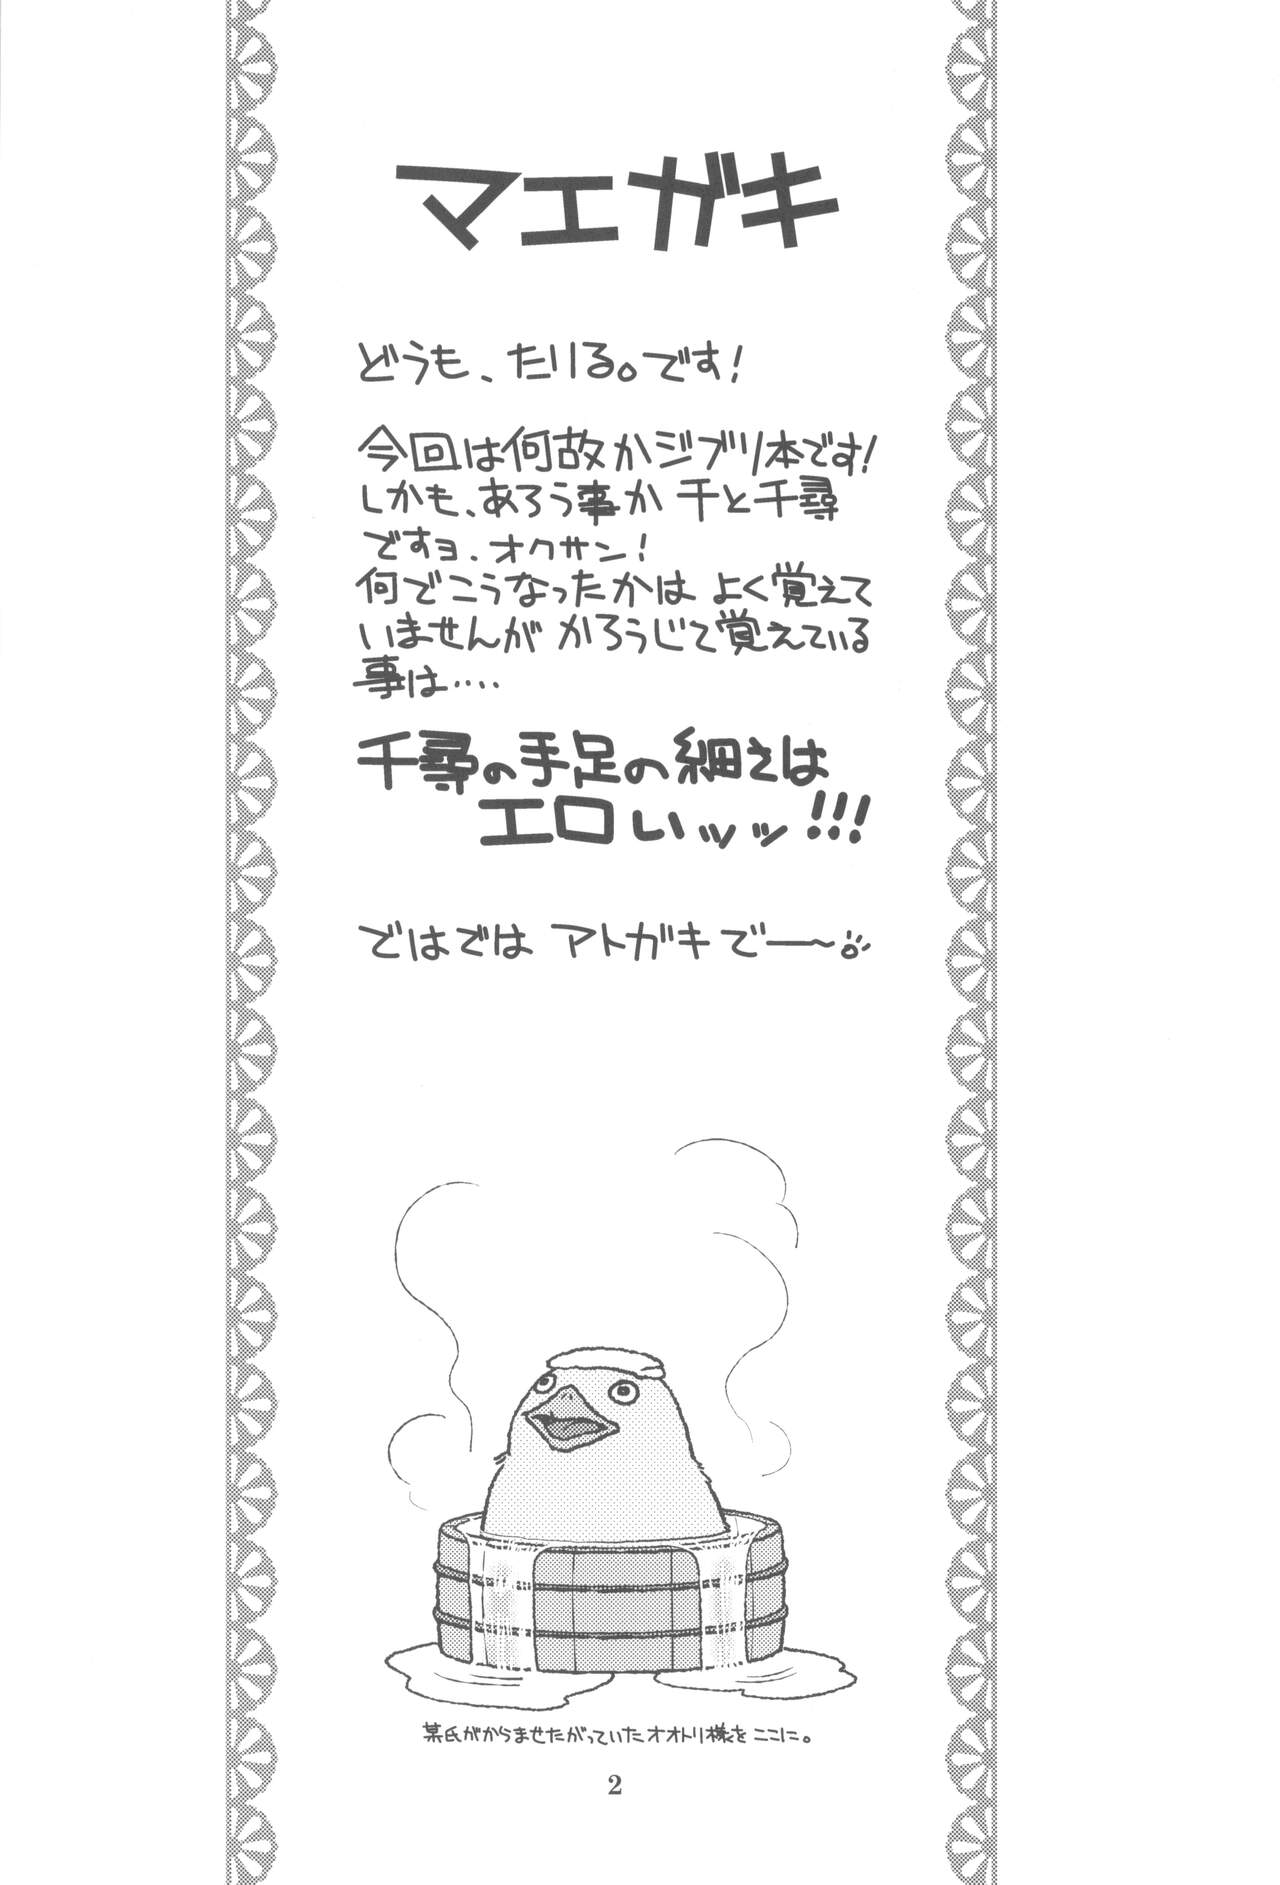 マエガキ
どうも、たりる。です!
今回は何故かジブリ本です!
しかも、あろう事か 千と千尋
ですヨ、オクサン!
何でこうなったかは よく覚えて
いませんが かろうじて覚えている
事は‥‥
ではでは アトガキでー～
某氏がからませたがっていたオオトリ様をここに。
2